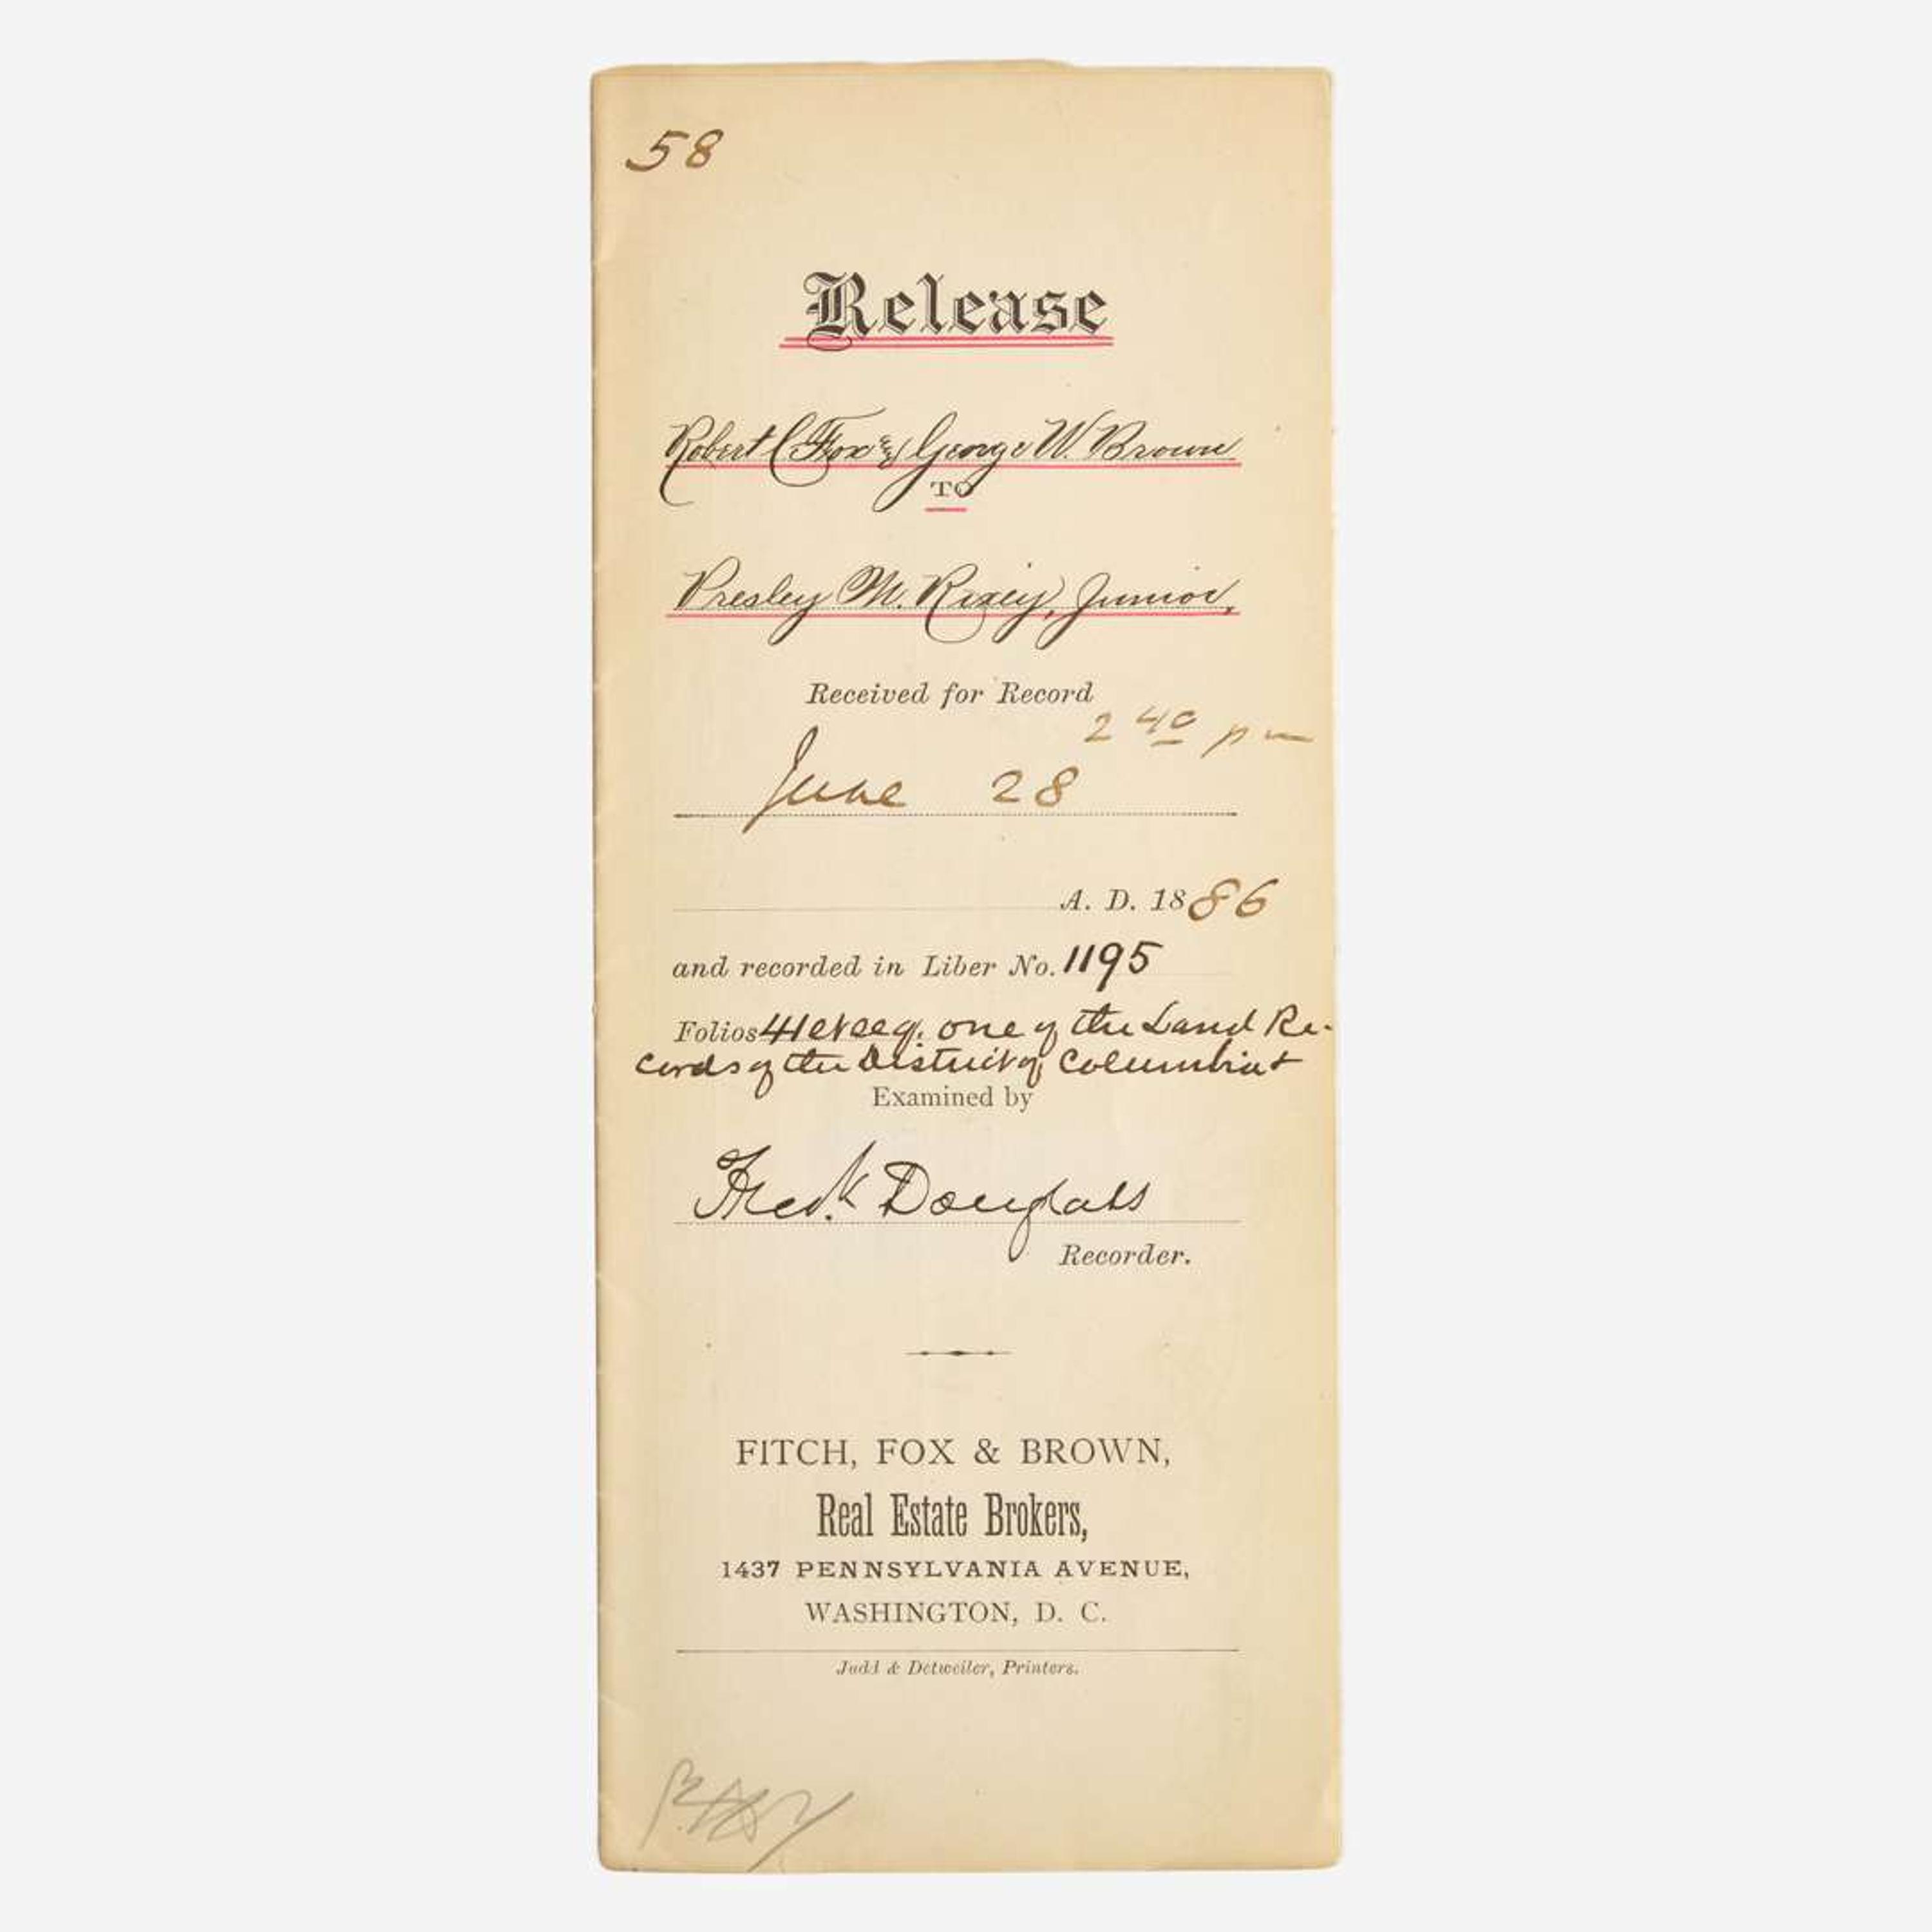 58
Release
Robert C. Fox & George W. Brown
TO
Presley M. Rixey, Junior,
Received for Record
2 40 pm
June 28
A. D. 1886
and recorded in Liber No. 1195
Folios 41 et seq. one of the Land Re-
cords of the District of Columbia &
Examined by
Fredk Douglass
Recorder.
FITCH, FOX & BROWN,
Real Estate Brokers,
1437 PENNSYLVANIA AVENUE,
WASHINGTON, D. C.
Judd & Detweiler, Printers.